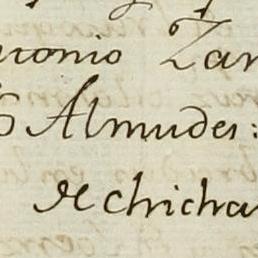 ntonio Zar
6 Almudes:
de chicha